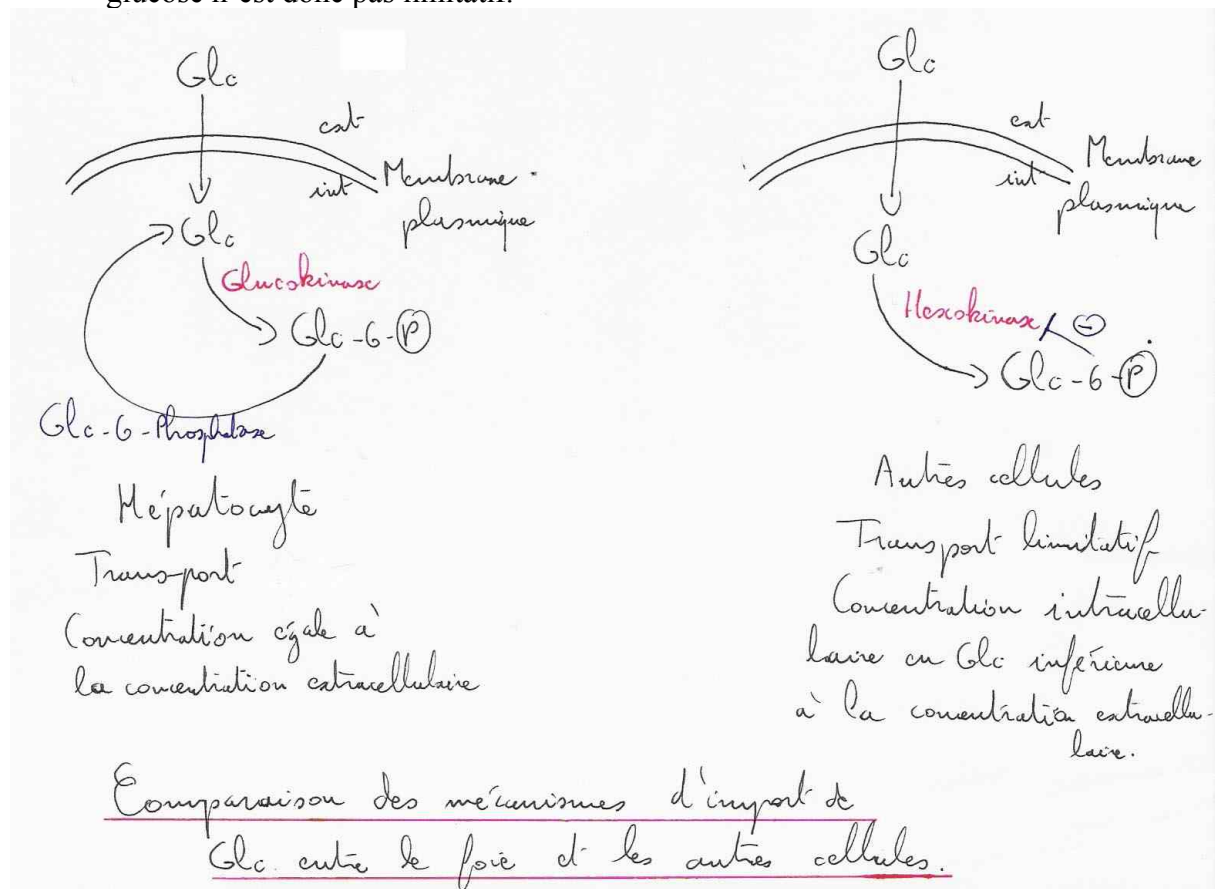 glucose n'est donc pas limitatif.
Glc
ext
int
Membrane
plasmique
Glc
Glucokinase
Glc-6-P
Glc-6-Phosphatase
Hépatocyte
Transport
Concentration égale à
la concentration extracellulaire
Glc
ext
int
Membrane
plasmique
Glc
Hexokinase
-
Glc-6-P
Autres cellules
Transport limitatif
Concentration intracellu-
laire en Glc inférieure
à la concentration extracellu-
laire.
Comparaison des mécanismes d'import de
Glc entre le foie et les autres cellules.